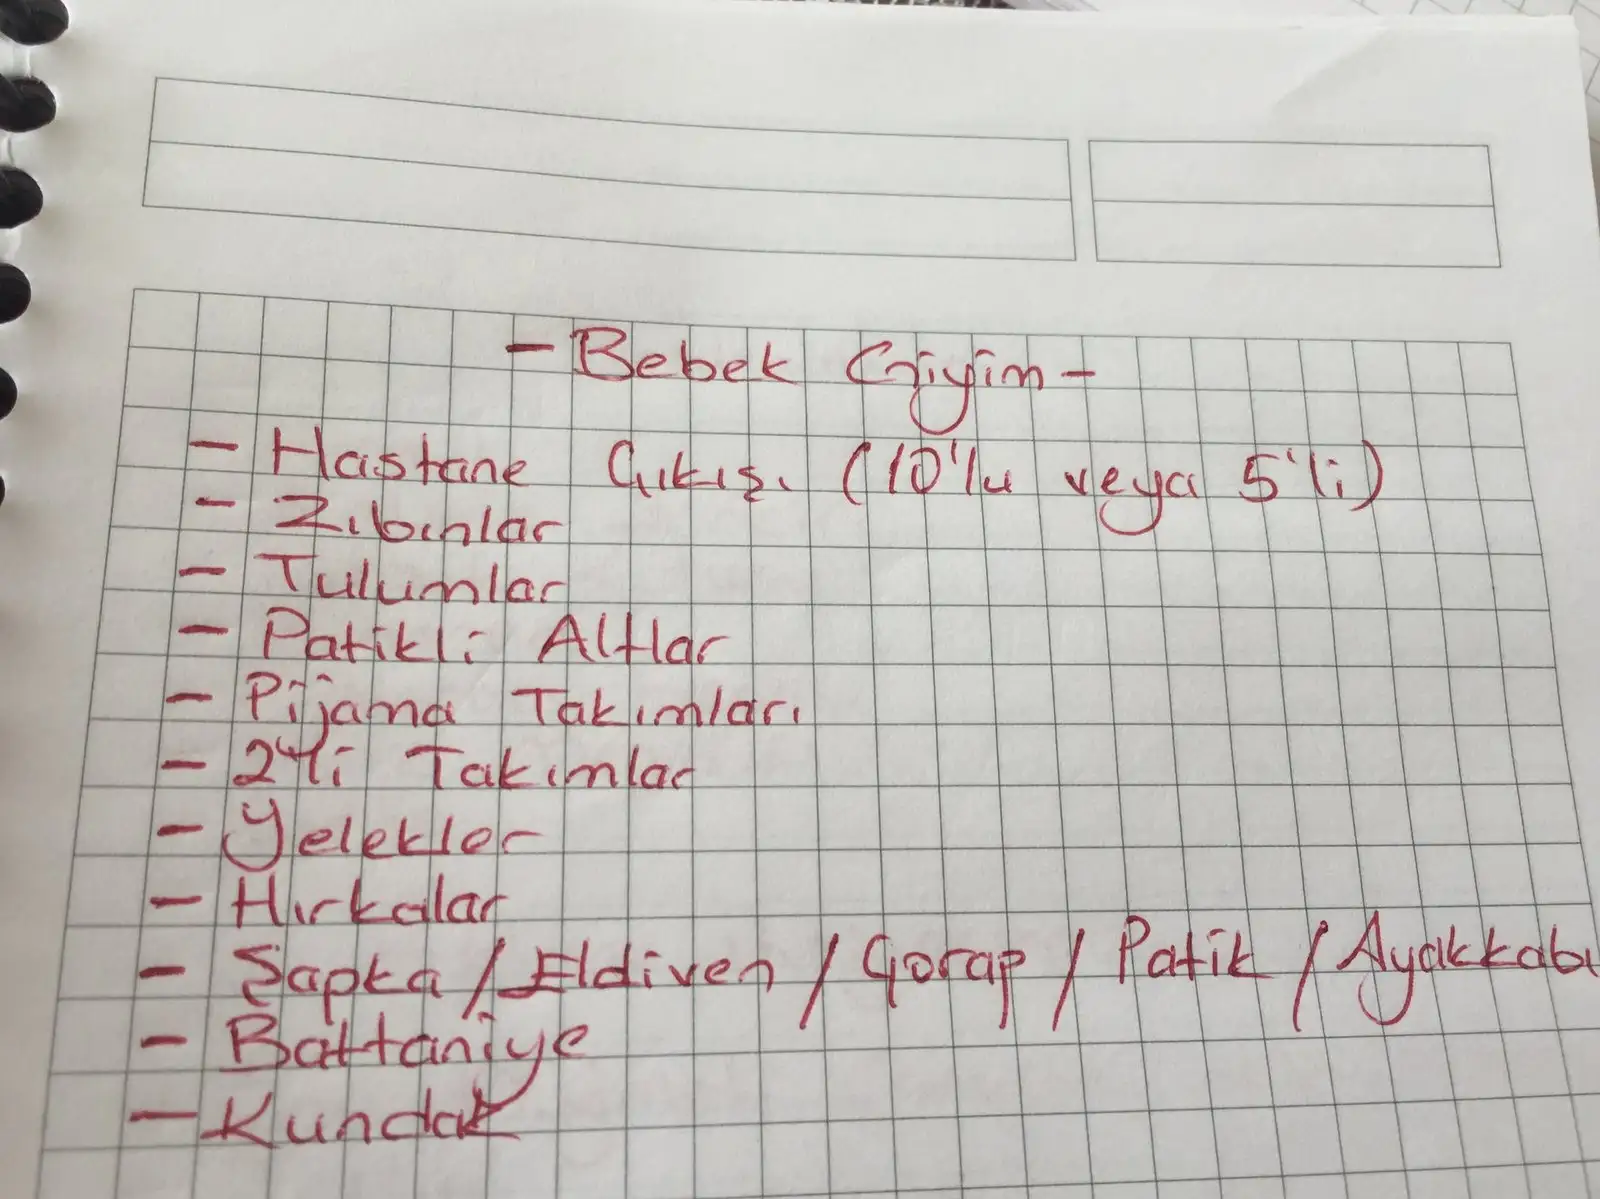 - Bebek Giyim -
- Hastane Çıkışı (10'lu veya 5'li)
- Zıbınlar
- Tulumlar
- Patikli Altlar
- Pijama Takımları
- 2'li Takımlar
- Yelekler
- Hırkalar
- Şapka / Eldiven / Çorap / Patik / Ayakkabı
- Battaniye
- Kundak